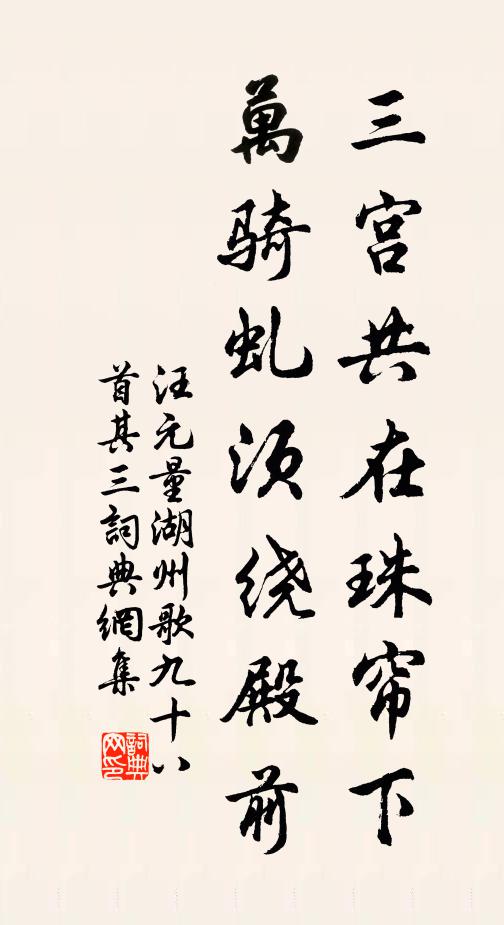 三宫共在珠帘下
萬骑虬须绕殿前
汪元量湖州歌九十八
首其三詞典網集
詞典
网印